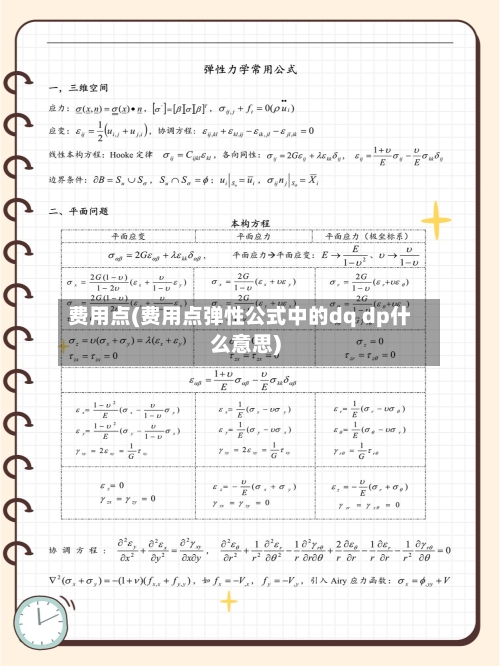 弹性力学常用公式
一，三维空间
应力：σ(x,n)=σ(x)•n，[σ']=[β][σ][β]ᵀ，σᵢⱼ,ⱼ + fᵢ = 0(ρüᵢ)
应变：εᵢⱼ = 1/2(uᵢ,ⱼ + uⱼ,ᵢ)，协调方程：εᵢⱼ,ₖₗ + εₖₗ,ᵢⱼ − εᵢₖ,ⱼₗ − εⱼₗ,ᵢₖ = 0
线性本构方程：Hooke 定律 σᵢⱼ = Cᵢⱼₖₗεₖₗ，各向同性：σᵢⱼ = 2Gεᵢⱼ + λεₖₖδᵢⱼ，εᵢⱼ = (1+υ)/E σᵢⱼ − υ/E σₖₖδᵢⱼ
边界条件：∂B = Sᵤ ∪ Sσ，Sᵤ ∩ Sσ = ϕ；uᵢ|Sᵤ = ūᵢ，σᵢⱼnⱼ|Sσ = X̄ᵢ
二、平面问题
本构方程
平面应变 平面应力 平面应力（极坐标系）
σαβ = 2Gεαβ + λεₖₖδαβ， 平面应力→平面应变：E → E/(1−υ²)、υ → υ/(1−υ)
费用点(费用点弹性公式中的dq dp什
么意思)
σz = υ(σx + σy) = λ(εx + εy) σz = 0
τzx = τzy = 0
εαβ = (1+υ)/E σαβ − υ/E σₖₖδαβ
εx = (1−υ²)/E (σx − υ/(1−υ) σy) εx = 1/E (σx − υσy) εr = 1/E (σr − υσθ)
εy = (1−υ²)/E (σy − υ/(1−υ) σx) εy = 1/E (σy − υσx) εθ = 1/E (σθ − υσr)
γxy = 2εxy = 1/G τxy γxy = 2εxy = 1/G τxy γrθ = 1/G τrθ
εz = 0 εz = −υ/E (σx + σy) εz = −υ/E (σr + σθ)
γzx = γzy = 0 γzx = γzy = 0 γzr = γzθ = 0
协调方程：∂²εx/∂y² + ∂²εy/∂x² = ∂²γxy/∂x∂y，∂²εθ/∂r² + 1/r² ∂²εr/∂θ² − 1/r ∂²γrθ/∂r∂θ + 2/r ∂εθ/∂r − 1/r ∂εr/∂r − 1/r² ∂γrθ/∂θ = 0
∇²(σx + σy) = −(1+υ)(fx,x + fy,y)，如 fx = −V,x，fy = −V,y，引入 Airy 应力函数：σx = ϕ,yy + V